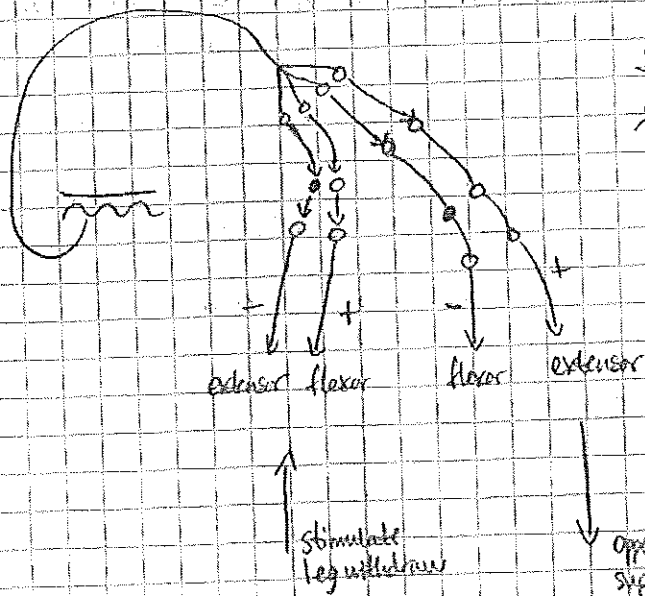 - + - +
extensor flexor flexor extensor
stimulate
leg withdraw
opp